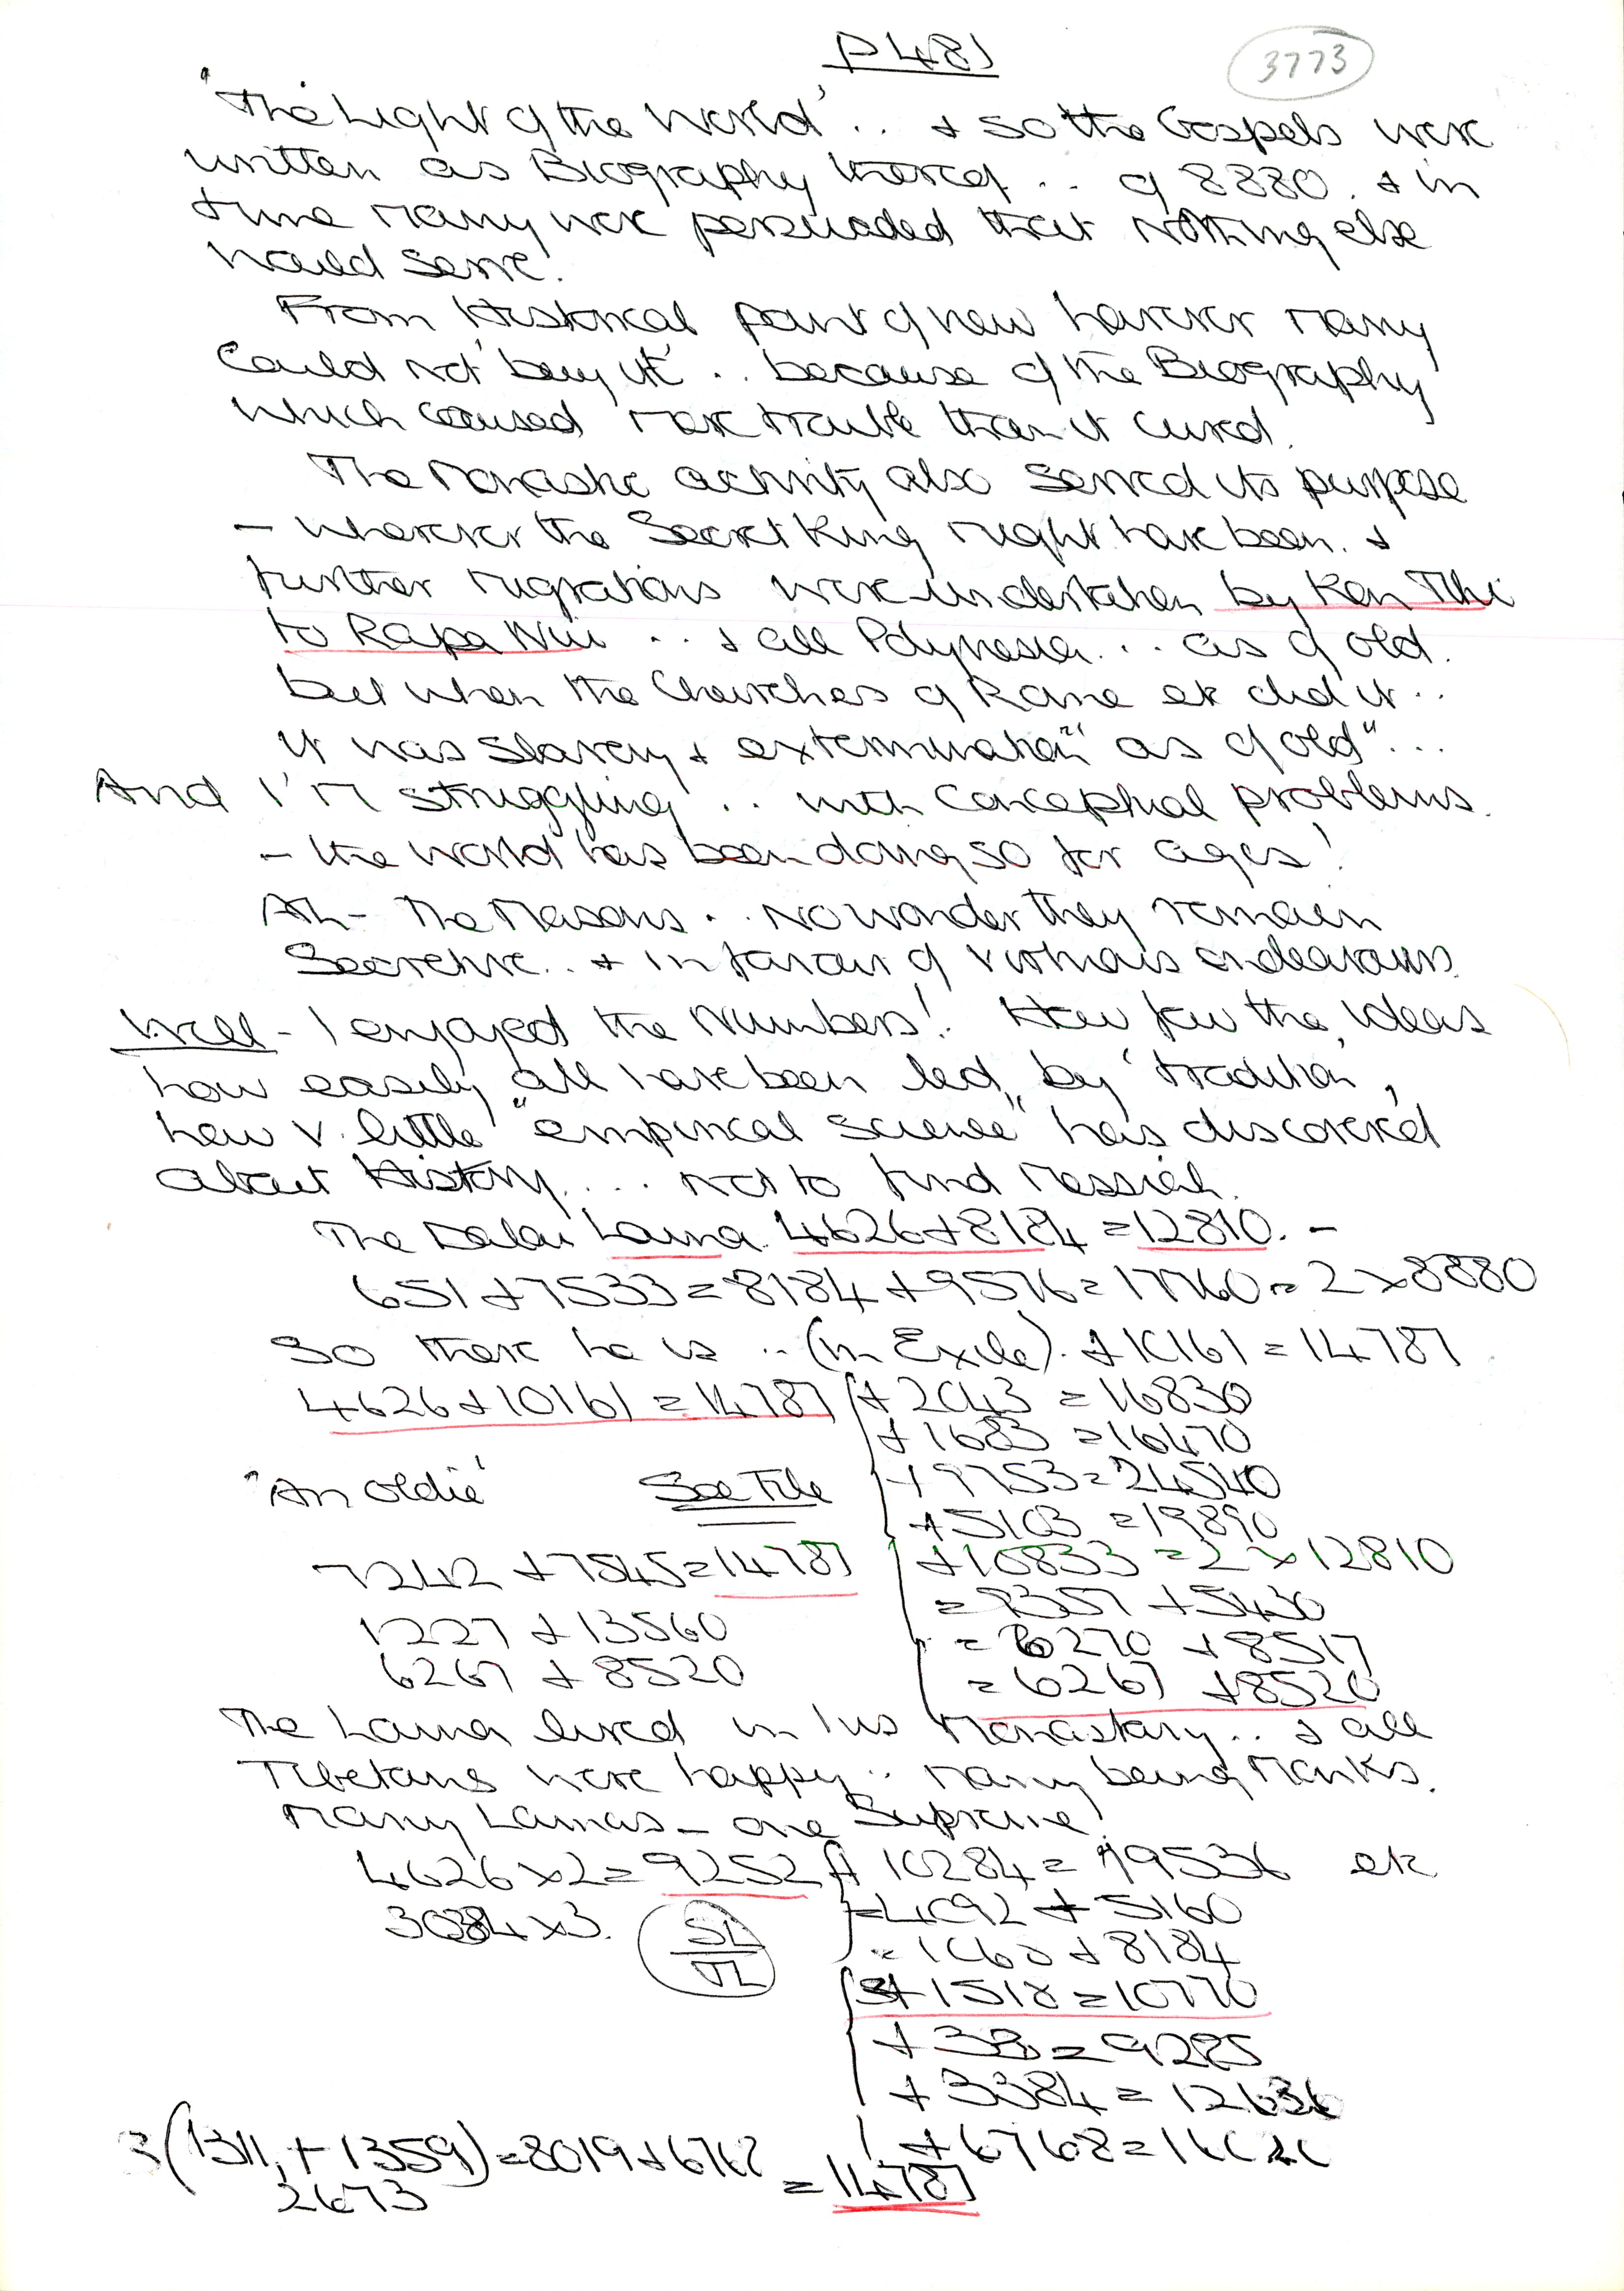 P481
3773
"The Light of the World' .. + so the Gospels were
written as Biography thereof .. of 8880. + in
time many were persuaded that Nothing else
would serve!
From Historical point of view however many
could not 'buy it' .. because of the Biography
which caused more trouble than it cured.
The Monastic activity also served its purpose
- wherever the Secret King might have been. +
further migrations were undertaken by Kon Tiki
to Rapa Nui ... + all Polynesia... as of old.
but when the Churches of Rome etc did it ..
it was slavery + extermination "as of old"...
And I'm struggling! .. with Conceptual problems.
- the world has been doing so for ages!
Ah - The Masons .. No wonder they remain
Secretive .. + in favour of virtuous endeavours.
Well - I enjoyed the Numbers! How few the ideas
how easily all have been led, by 'tradition',
how v. little "empirical science" has discovered
about History.... not to find Messiah.
The Dalai Lama. 4626+8184 = 12810. -
651+7533 = 8184 + 9576 = 17760 = 2 x 8880
So there he is .. (in Exile). + 10161 = 14787
4626 + 10161 = 14787 + 2043 = 16830
+ 1683 = 16470
"An oldie' See File + 9753 = 24540
+ 5103 = 19890
7242 + 7545 = 14787 + 10833 = 2 x 12810
= 9357 + 5430
1227 + 13560 = 6270 + 8517
6267 + 8520 = 6267 + 8520
The Lama lived in his Monastary .. + all
Tibetans were happy .. many being Monks.
Many Lamas - one Supreme!
4626 x 2 = 9252 + 10284 = 19536 etc
3084 x 3. = 4092 + 5160
SL
JL
= 1068 + 8184
+ 1518 = 10770
+ 33 = 9285
+ 3384 = 12636
3(1311 + 1359) = 8019 + 6768 + 6768 =
2673 = 14787